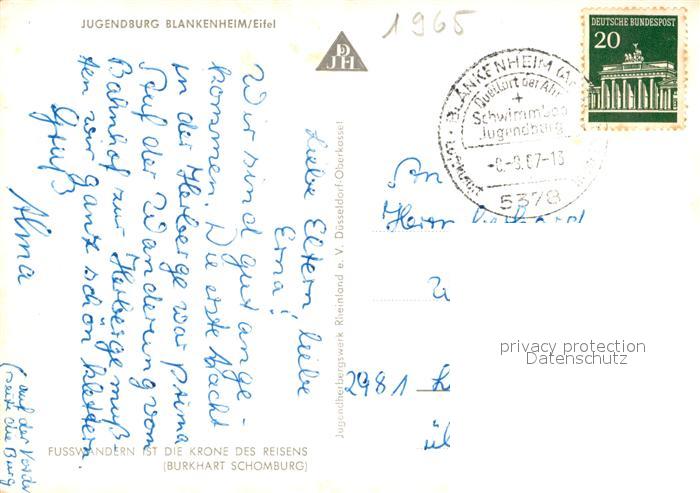 JUGENDBURG BLANKENHEIM/Eifel
1965
DJH
DEUTSCHE BUNDESPOST
20
BLANKENHEIM (Ahr
Quellort der Ahr
+
Schwimmbad
Jugendburg
-8.-8.67-18
5378
Liebe Eltern, liebe
Erna!
Wir sind gut ange-
kommen. Die erste Nacht
in der Herberge war prima
Auf der Wanderung vom
Bahnhof zur Herberge muß-
ten wir ganz schön klettern.
Gruß
Alma
(auf der Vorder
seite die Burg
Jugendherbergswerk Rheinland e. V. Düsseldorf-Oberkassel
An
Herrn
2981
üb
privacy protection
Datenschutz
FUSSWANDERN IST DIE KRONE DES REISENS
(BURKHART SCHOMBURG)